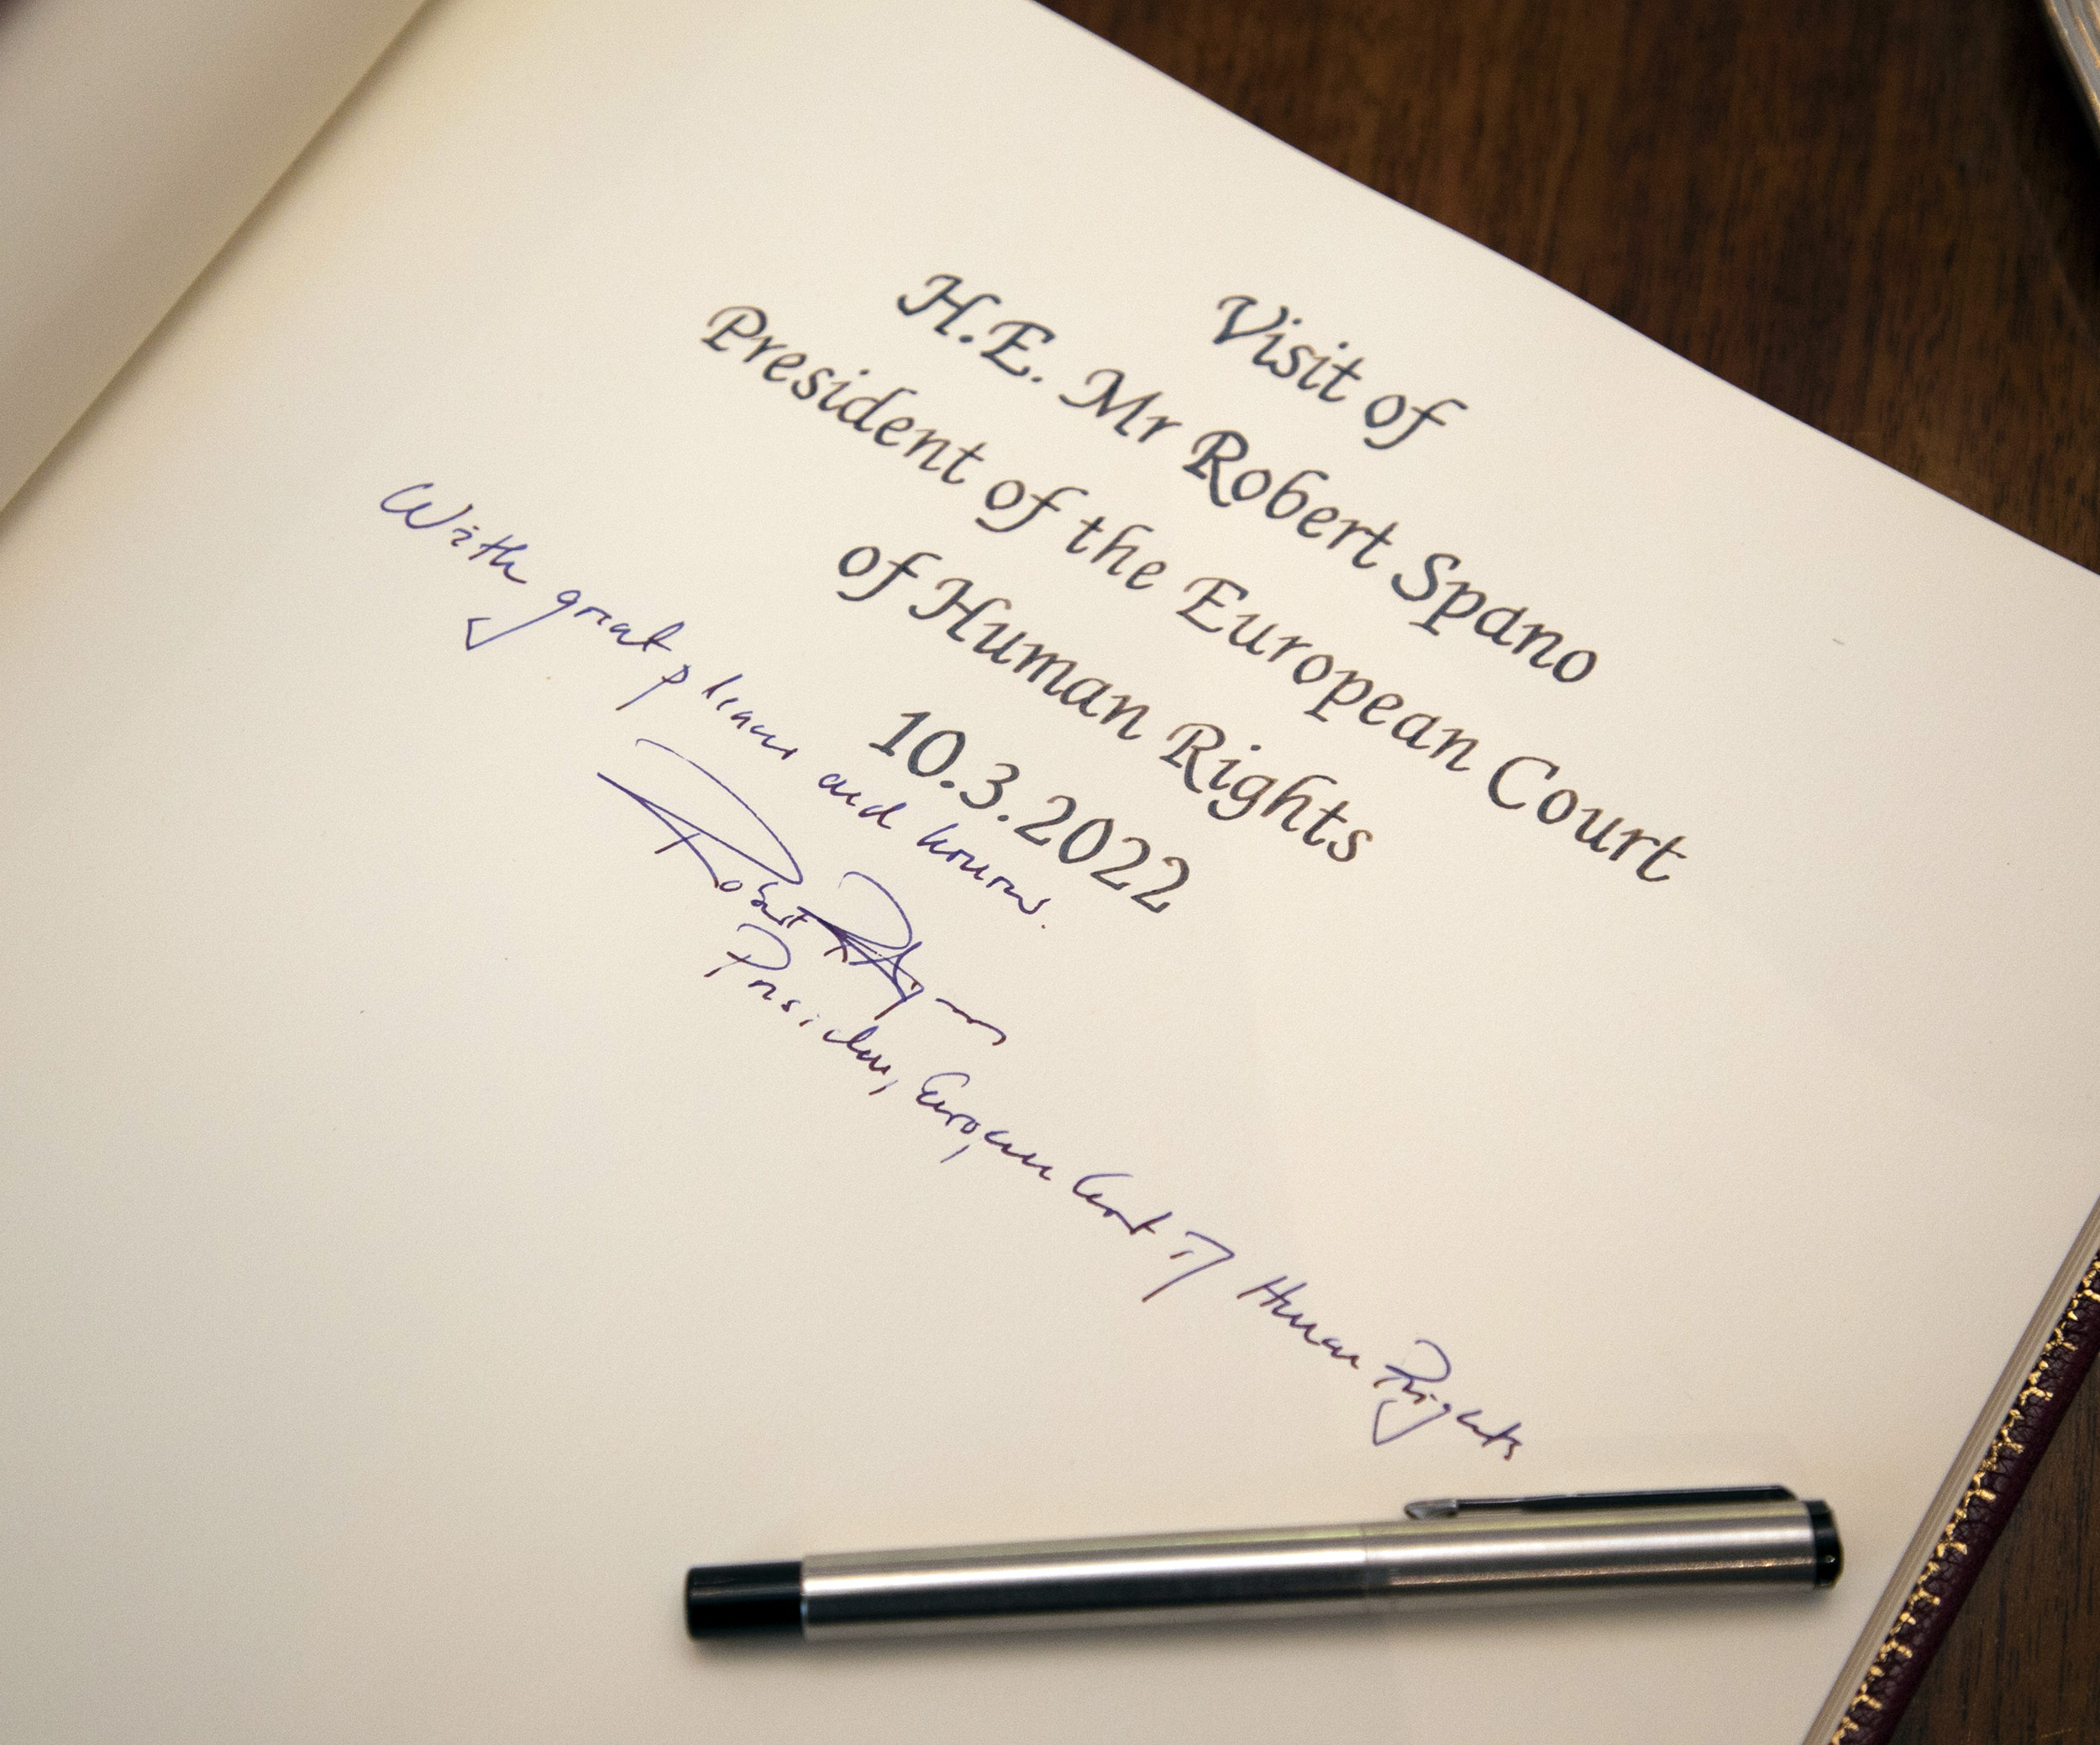 Visit of
H.E. Mr Robert Spano
President of the European Court
of Human Rights
10.3.2022
With great pleasure and honour.
Robert
President, European Court of Human Rights